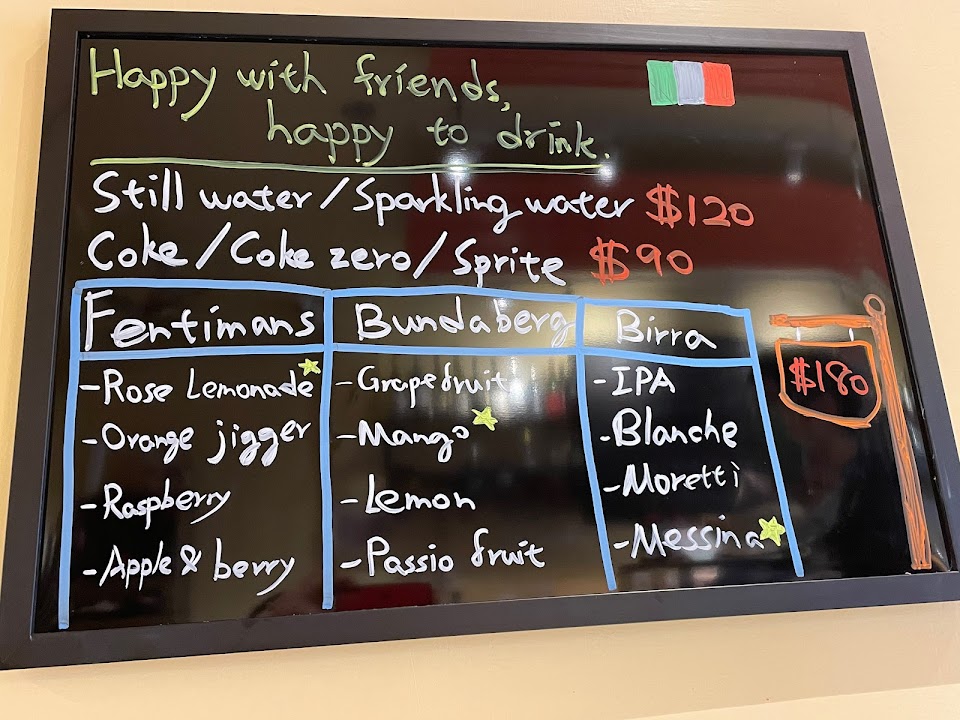 Happy with friends,
happy to drink.
Still water/Sparkling water $120
Coke/Coke zero/Sprite $90
Fentimans
-Rose Lemonade
-Orange jigger
-Raspberry
-Apple & berry
Bundaberg
-Grapefruit
-Mango
-Lemon
-Passio fruit
Birra
-IPA
-Blanche
-Moretti
-Messina
$180